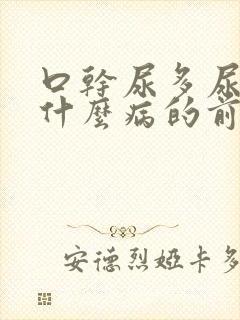 口幹尿多尿
什麼病的前
安德烈婭卡多